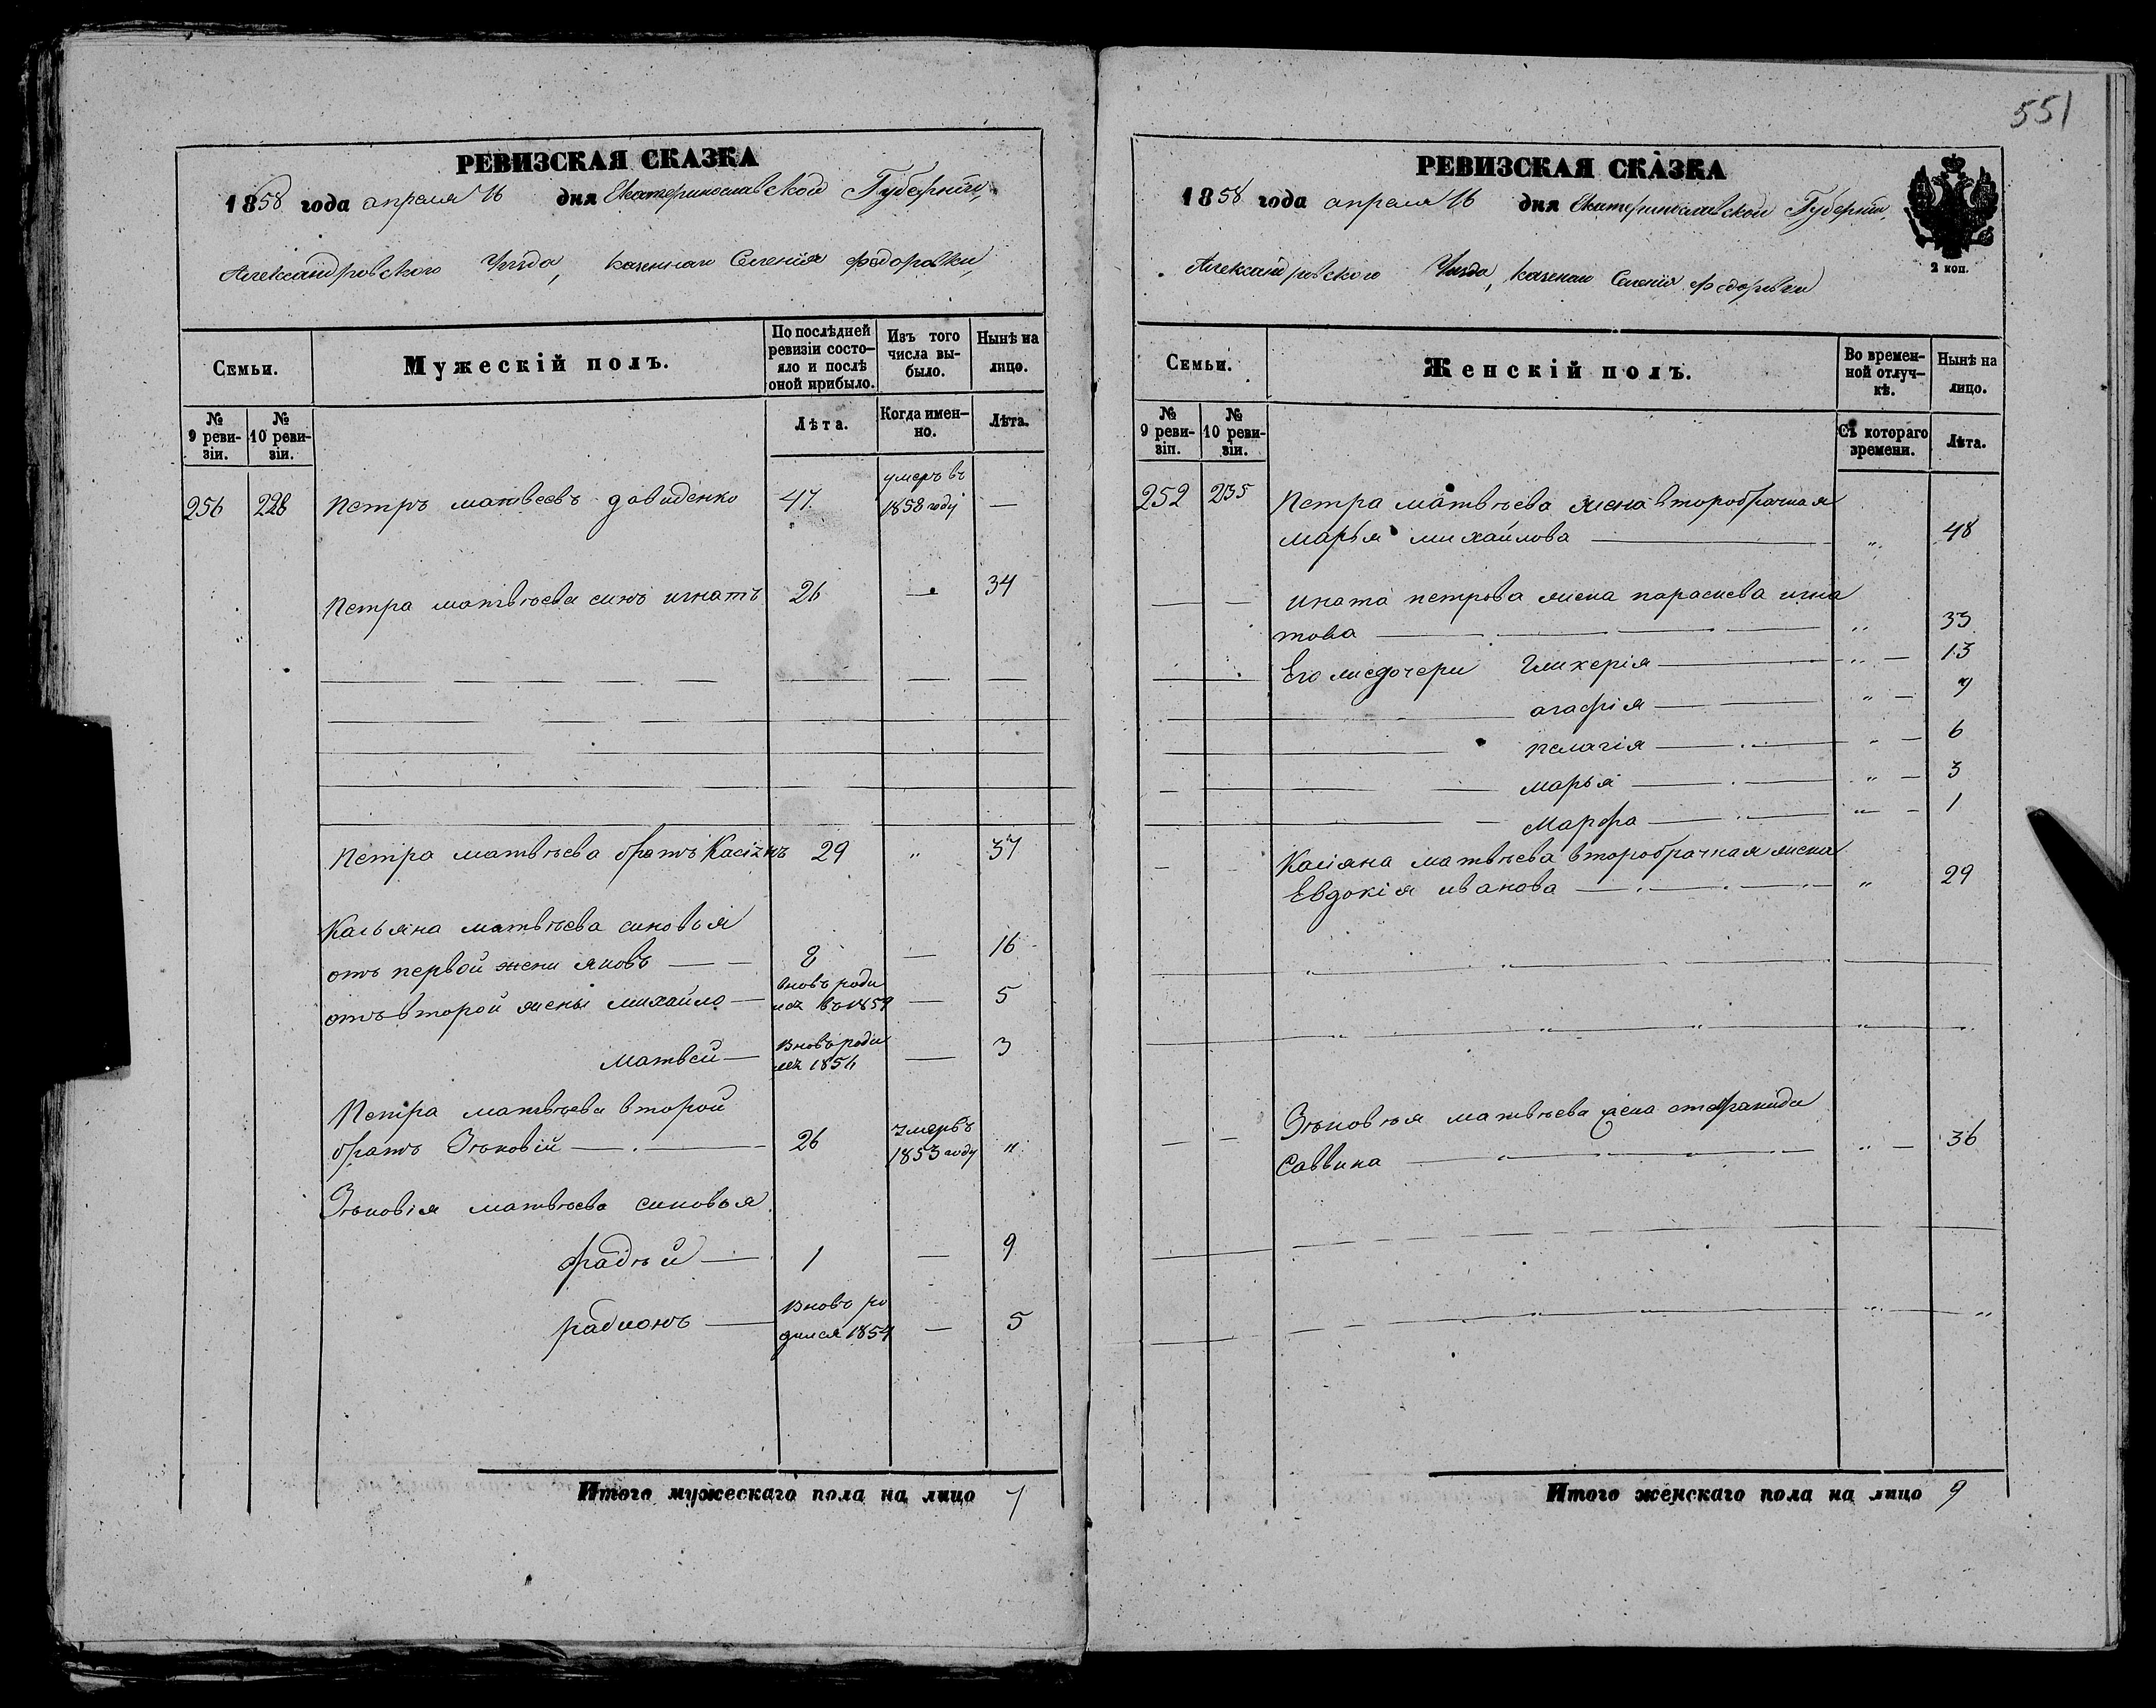 551
РЕВИЗСКАЯ СКАЗКА
1858 года апреля 16 дня Екатеринославской Губерніи,
Александровского Уезда, казеннаго Селенія Федоровки,
Семьи.
Мужескій полъ.
По послѣдней ревизіи состояло и послѣ оной прибыло.
Изъ того числа выбыло.
Нынѣ на лицо.
№ 9 ревизіи.
№ 10 ревизіи.
Лѣта.
Когда именно.
Лѣта.
256 228 Петръ матвеевъ давиденко 47 умеръ въ 1858 году —
Петра матвѣева синъ игнатъ 26 — 34
Петра матвѣева братъ Касіянъ 29 " 37
Касьяна матвѣева синовья
отъ первой жени яковъ — 8 — 16
отъ второй жены михайло — вновь роди 5
матвей — вновь роди 3
Петра матвѣева второй
братъ Зѣновій — 26 умеръ в 1853 году "
Зѣновія матвѣева синовья
фадѣй — 1 — 9
радионъ — вновь родился 1854 — 5
Итого мужескаго пола на лицо 7
РЕВИЗСКАЯ СКАЗКА
1858 года апреля 16 дня Екатеринославской Губерніи,
Александровского Уезда, казенаго Селенія Федоровки
2 коп.
Семьи.
Женскій полъ.
Во временной отлучкѣ.
Нынѣ на лицо.
№ 9 ревизіи.
№ 10 ревизіи.
Съ котораго времени.
Лѣта.
252 235 Петра матвѣева жена второбрачная
марья михайлова — " 48
игната петрова жена параскева игна
това — " 33
Его же дочери Гликерія — " — 13
агафія — " —
пелагія — " — 6
марья — " — 3
Марфа — " — 1
Касіяна матвѣева второбрачная жена
Евдокія иванова — " 29
Зѣновія матвѣева жена стефанида
Саввина — " — 36
Итого женскаго пола на лицо 9